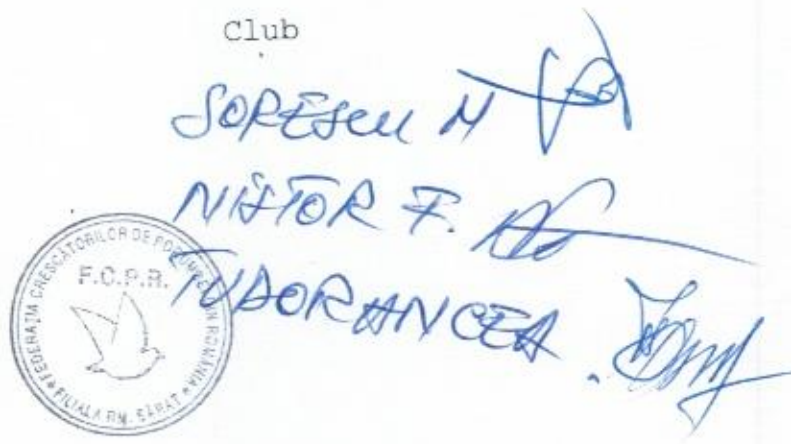 Club
SORESCU M
NISTOR F.
TUDORANCEA
FEDERAȚIA CRESCĂTORILOR DE PORUMBEI DIN ROMÂNIA
F.C.P.R.
FILIALA RM. SĂRAT